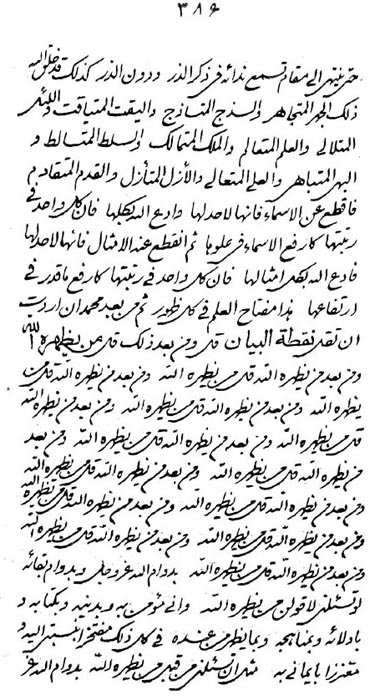 ٣٨٦
حتی ینتهی الی مقام تسمع ندائه فی ذکر الذر و دون الذر کذلک قد خلق الله
ذلک المتجاهر والسذج المتساذج والیقت المتیاقت و
المتلالی والعلم المتعالم والملک المتمالک والسلط المتسالط و
البهی المتباهی والعلی المتعالی والأزل المتأزل والقدم المتقادم
فاقطع عن الاسماء فانها لاحد لها وادع الله بکلها فان کل واحد فی
رتبتها کارفع الاسماء فی علوها ثم انقطع عند الامثال فانها لاحد لها
فادع الله بکل امثالها فان کل واحد فی رتبتها کارفع ما قدر فی
ارتفاعها هذا مفتاح العلم فی کل ظهور ثم من بعد محمد ان اردت
ان تقل نقطة البیان قل و من بعد ذلک قل من یظهره الله
و من بعد من یظهره الله قل من یظهره الله و من بعد من یظهره الله قل من
یظهره الله و من بعد من یظهره الله قل من یظهره الله و من بعد من یظهره الله
قل من یظهره الله و من بعد من یظهره الله قل من یظهره الله و من بعد
من یظهره الله قل من یظهره الله و من بعد من یظهره الله قل من یظهره الله
و من بعد من یظهره الله قل من یظهره الله و من بعد من یظهره الله قل من یظهره الله
و من بعد من یظهره الله قل من یظهره الله و من بعد من یظهره الله قل من یظهره الله
و من بعد من یظهره الله قل من یظهره الله بدوام الله عز و جل و بدوام بقائه
لو تسئلنی لاقولن من یظهره الله و انی مؤمن به و بدینه و بکتابه و
بادلائه و بمناهجه و بما یظهر من عنده فی کل ذلک مفتخر انسبنی الیه و
متعززا بایمانی به مثل ان تسئلنی من قبل من یظهره الله بدوام الله عز